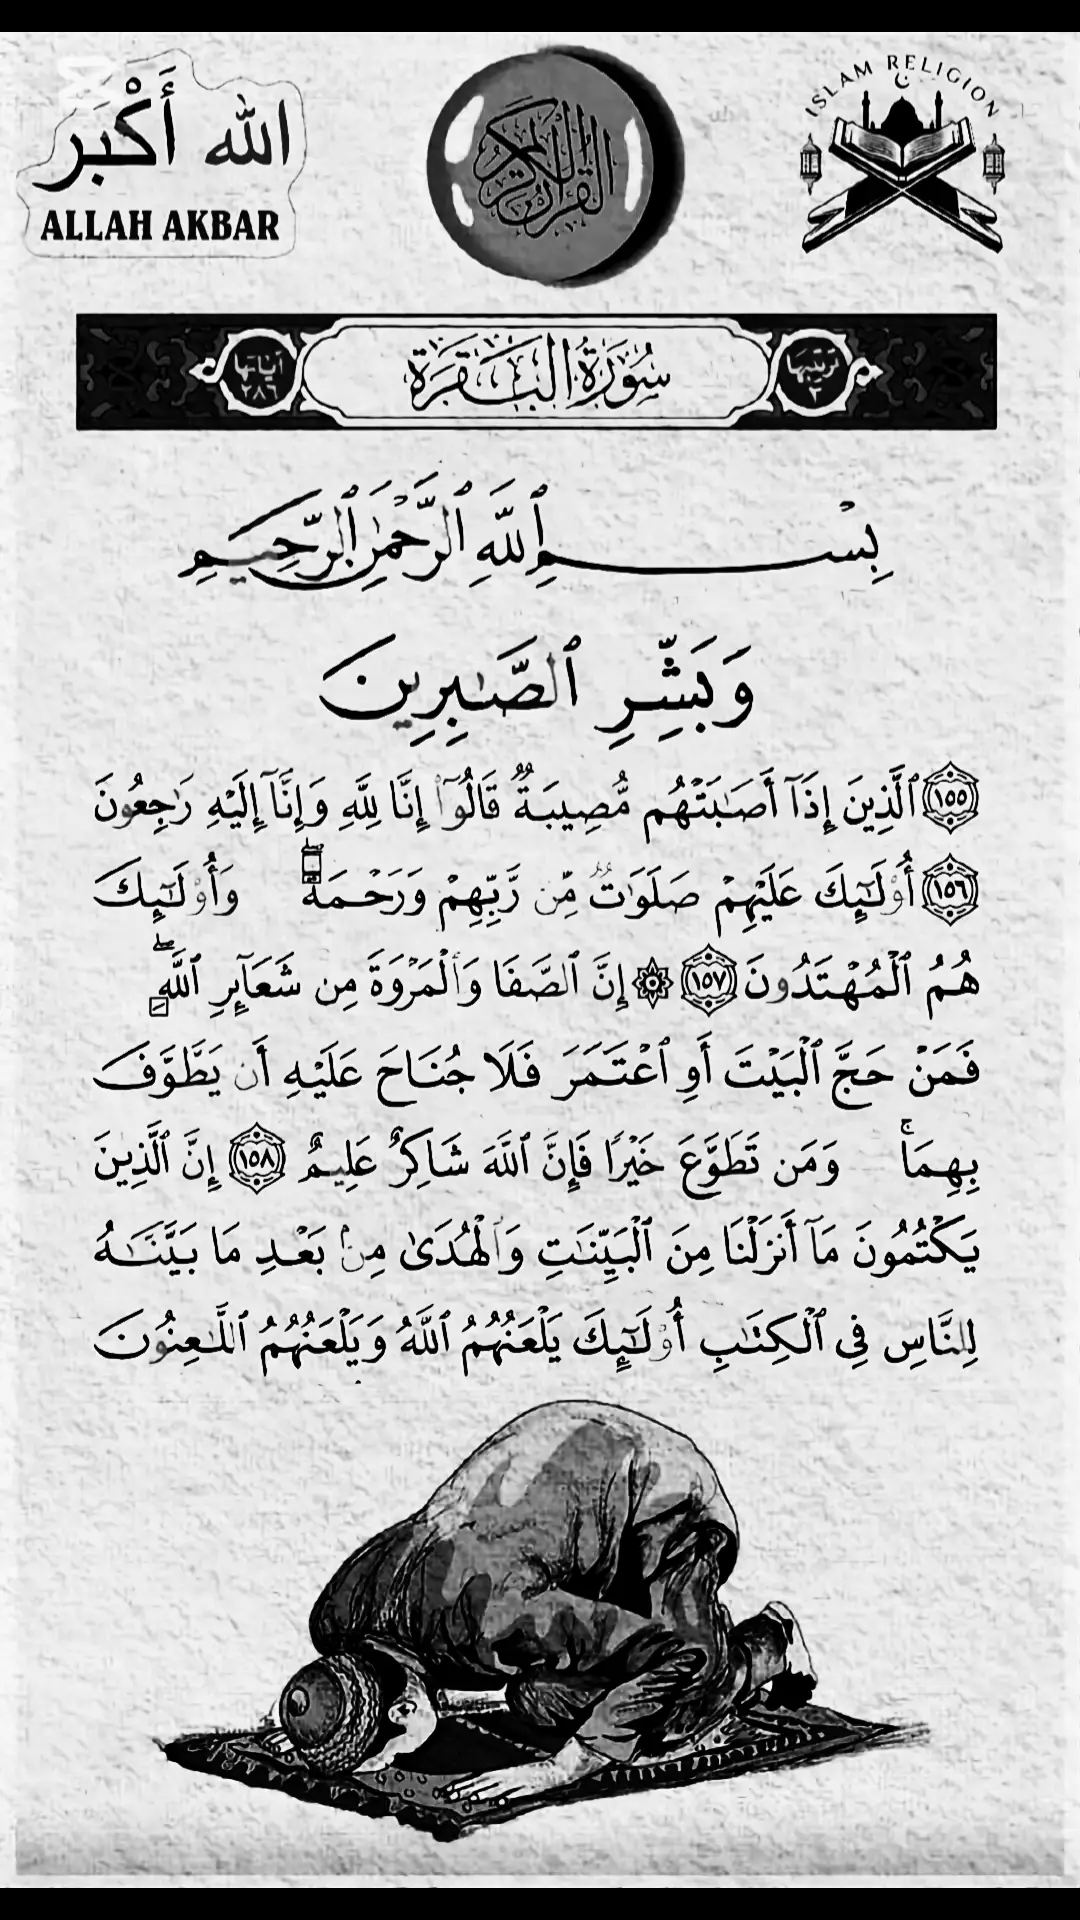 الله أَكْبَر
ALLAH AKBAR
القرآن الكريم
ISLAM RELIGION
ترتيبها ٢
سُورَةُ البَقَرَة
آياتها ٢٨٦
بِسْمِ ٱللَّهِ ٱلرَّحْمَٰنِ ٱلرَّحِيمِ
وَبَشِّرِ ٱلصَّٰبِرِينَ
١٥٥ ٱلَّذِينَ إِذَآ أَصَٰبَتْهُم مُّصِيبَةٌ قَالُوٓا۟ إِنَّا لِلَّهِ وَإِنَّآ إِلَيْهِ رَٰجِعُونَ
١٥٦ أُو۟لَٰٓئِكَ عَلَيْهِمْ صَلَوَٰتٌ مِّن رَّبِّهِمْ وَرَحْمَةٌ ۖ وَأُو۟لَٰٓئِكَ
هُمُ ٱلْمُهْتَدُونَ ١٥٧ ۞ إِنَّ ٱلصَّفَا وَٱلْمَرْوَةَ مِن شَعَآئِرِ ٱللَّهِ ۖ
فَمَنْ حَجَّ ٱلْبَيْتَ أَوِ ٱعْتَمَرَ فَلَا جُنَاحَ عَلَيْهِ أَن يَطَّوَّفَ
بِهِمَا ۚ وَمَن تَطَوَّعَ خَيْرًا فَإِنَّ ٱللَّهَ شَاكِرٌ عَلِيمٌ ١٥٨ إِنَّ ٱلَّذِينَ
يَكْتُمُونَ مَآ أَنزَلْنَا مِنَ ٱلْبَيِّنَٰتِ وَٱلْهُدَىٰ مِنۢ بَعْدِ مَا بَيَّنَّٰهُ
لِلنَّاسِ فِى ٱلْكِتَٰبِ أُو۟لَٰٓئِكَ يَلْعَنُهُمُ ٱللَّهُ وَيَلْعَنُهُمُ ٱللَّٰعِنُونَ